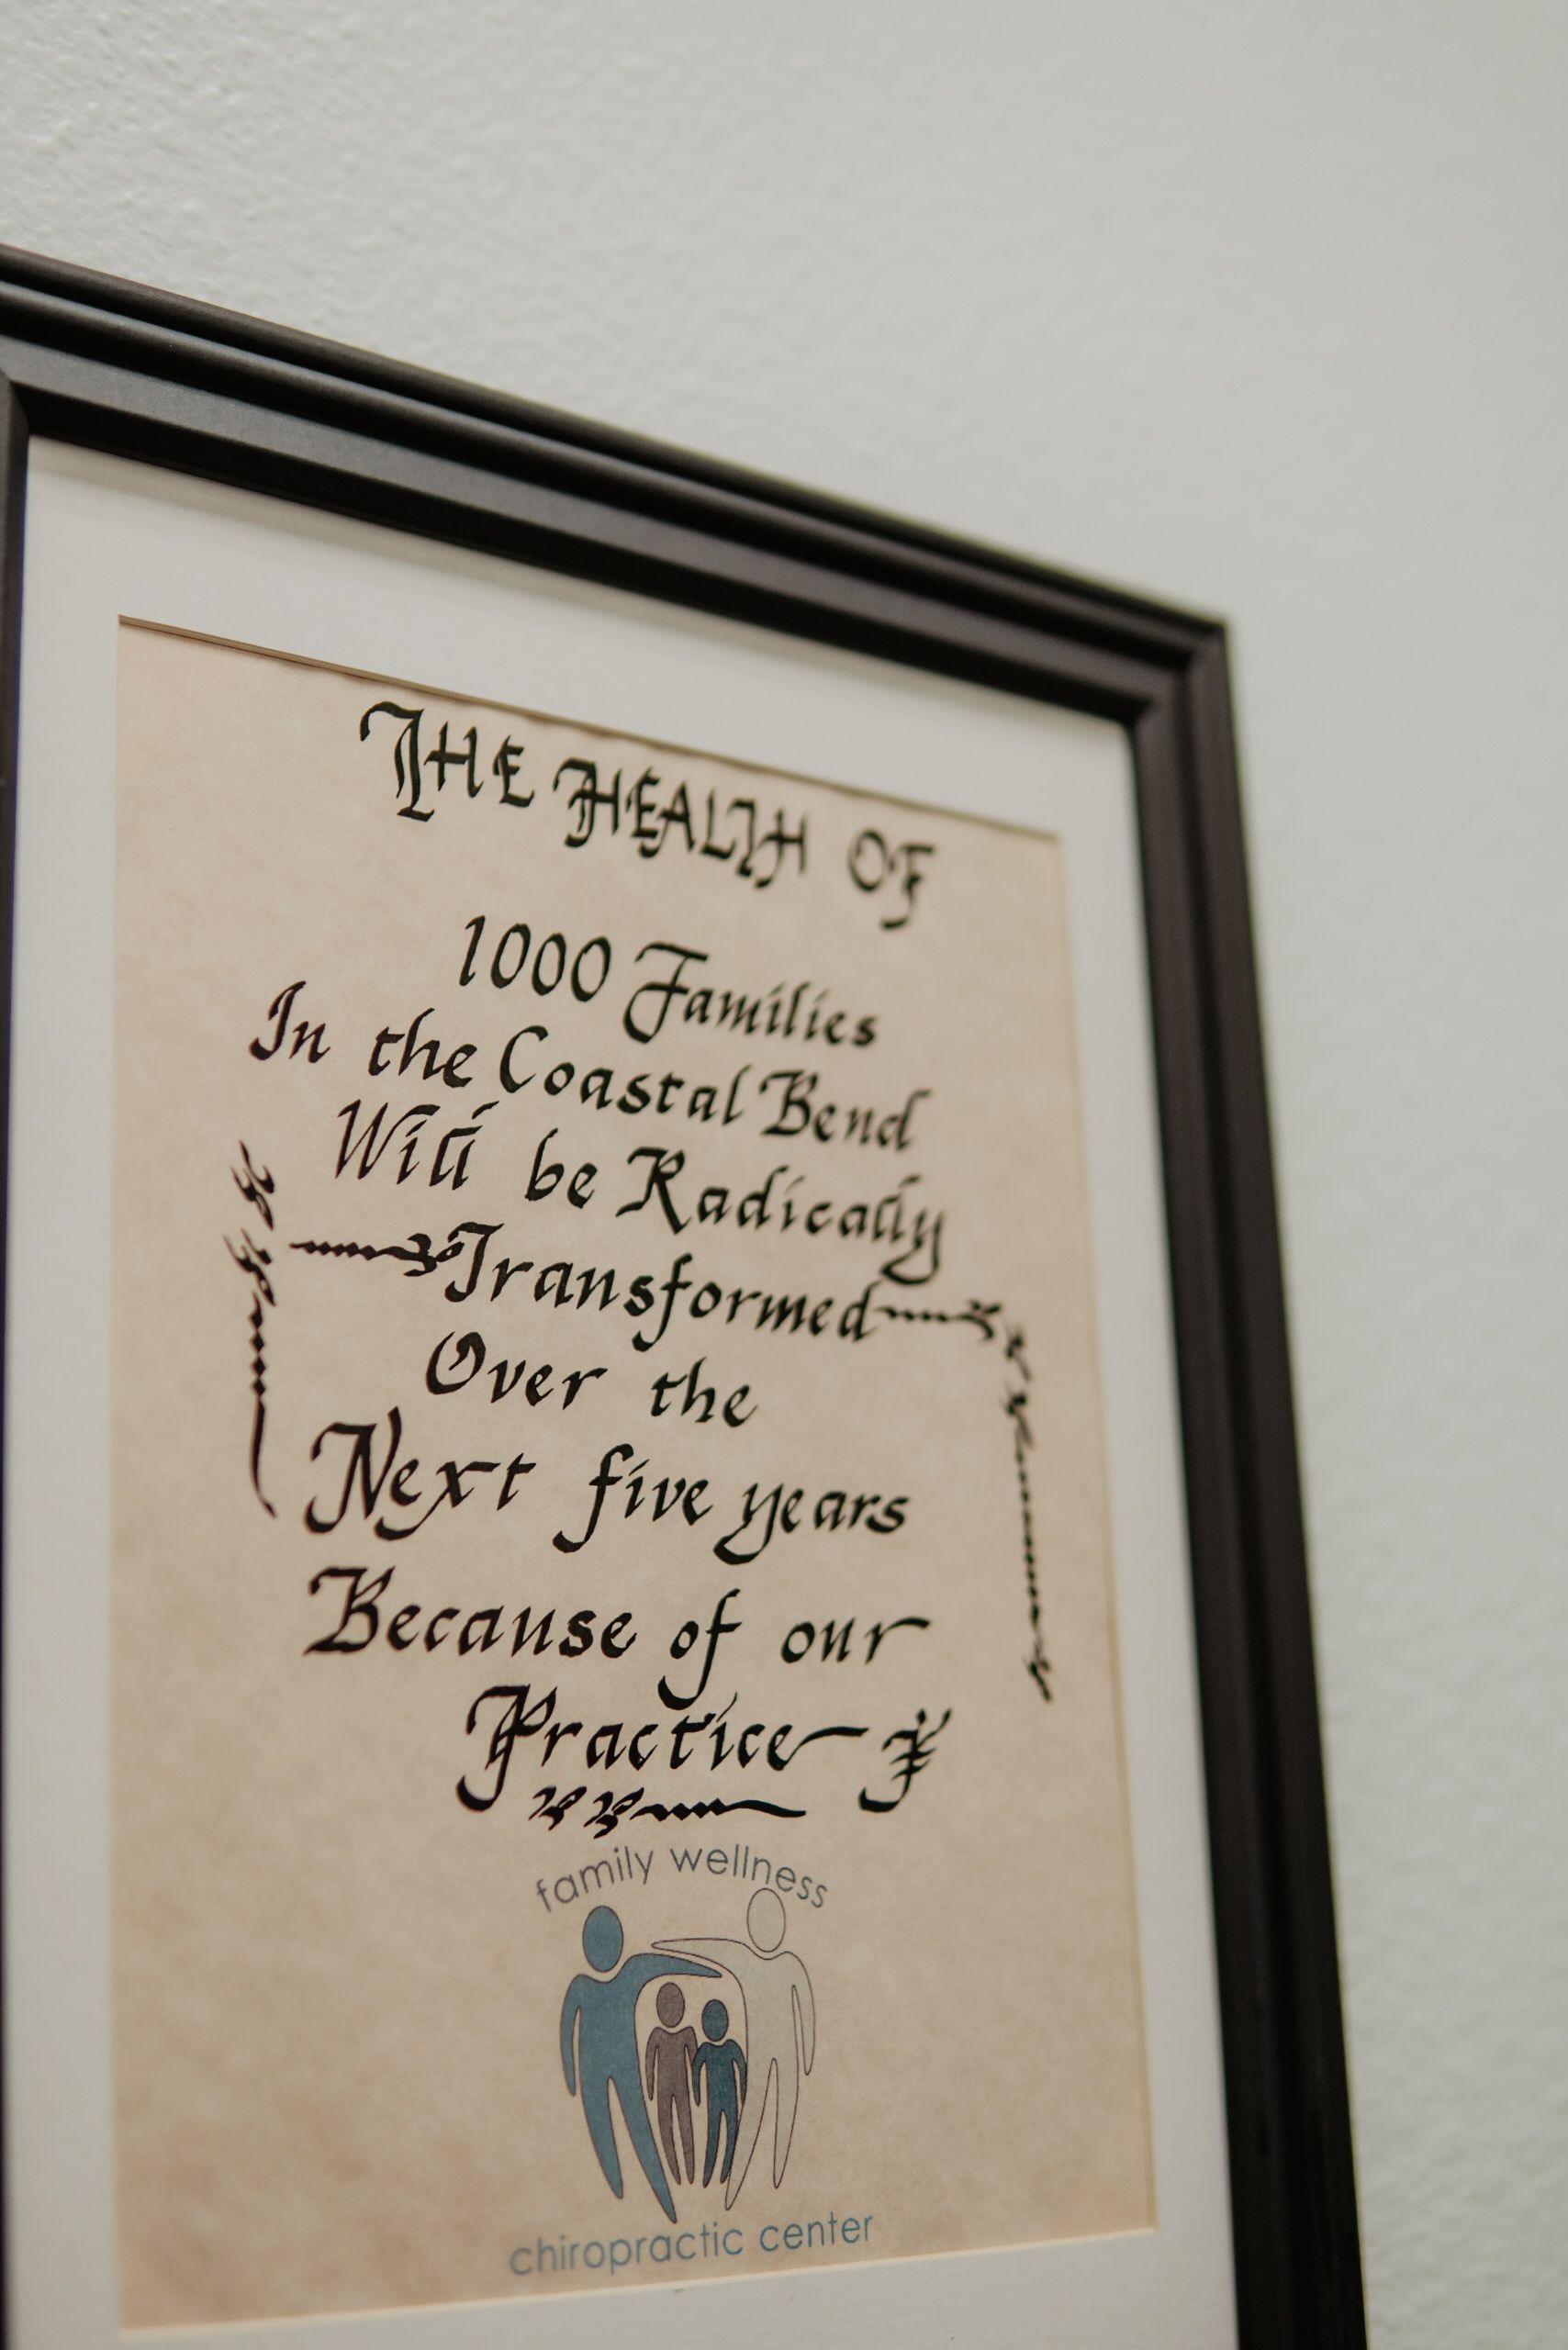 THE HEALTH OF
1000 Families
In the Coastal Bend
Will be Radically
Transformed
Over the
Next five years
Because of our
Practice
family wellness
chiropractic center